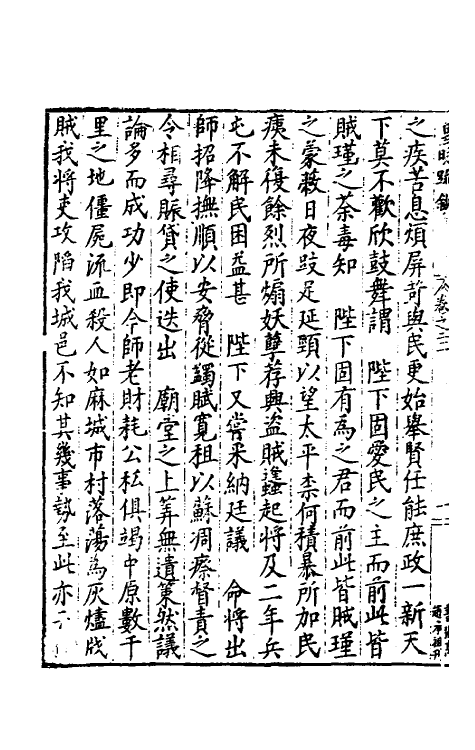 皇明疏鈔
卷之二
之疾苦息煩屏苛與民更始舉賢任能庶政一新天
下莫不歡欣鼓舞謂　陛下固愛民之主而前此皆
賊瑾之荼毒知　陛下固有為之君而前此皆賊瑾
之蒙蔽日夜跂足延頸以望太平柰何積暴所加民
痍未復餘烈所煽妖孽荐興盜賊蠭起將及二年兵
屯不解民困益甚　陛下又嘗采納廷議　命將出
師招降撫順以安脅從蠲賦寬租以蘇凋瘵督責之
令相尋賑貸之使迭出　廟堂之上筭無遺策然議
論多而成功少即今師老財耗公私俱竭中原數千
里之地僵屍流血殺人如麻城市村落蕩為灰燼戕
賊我將吏攻陷我城邑不知其幾事勢至此亦